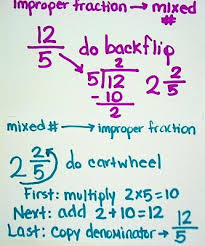 Improper fraction → mixed #
12/5 do backflip
2
5)12 2 2/5
-10
2
mixed # → improper fraction
2 2/5 do cartwheel
First: multiply 2x5=10
Next: add 2+10=12 12/5
Last: copy denominator →